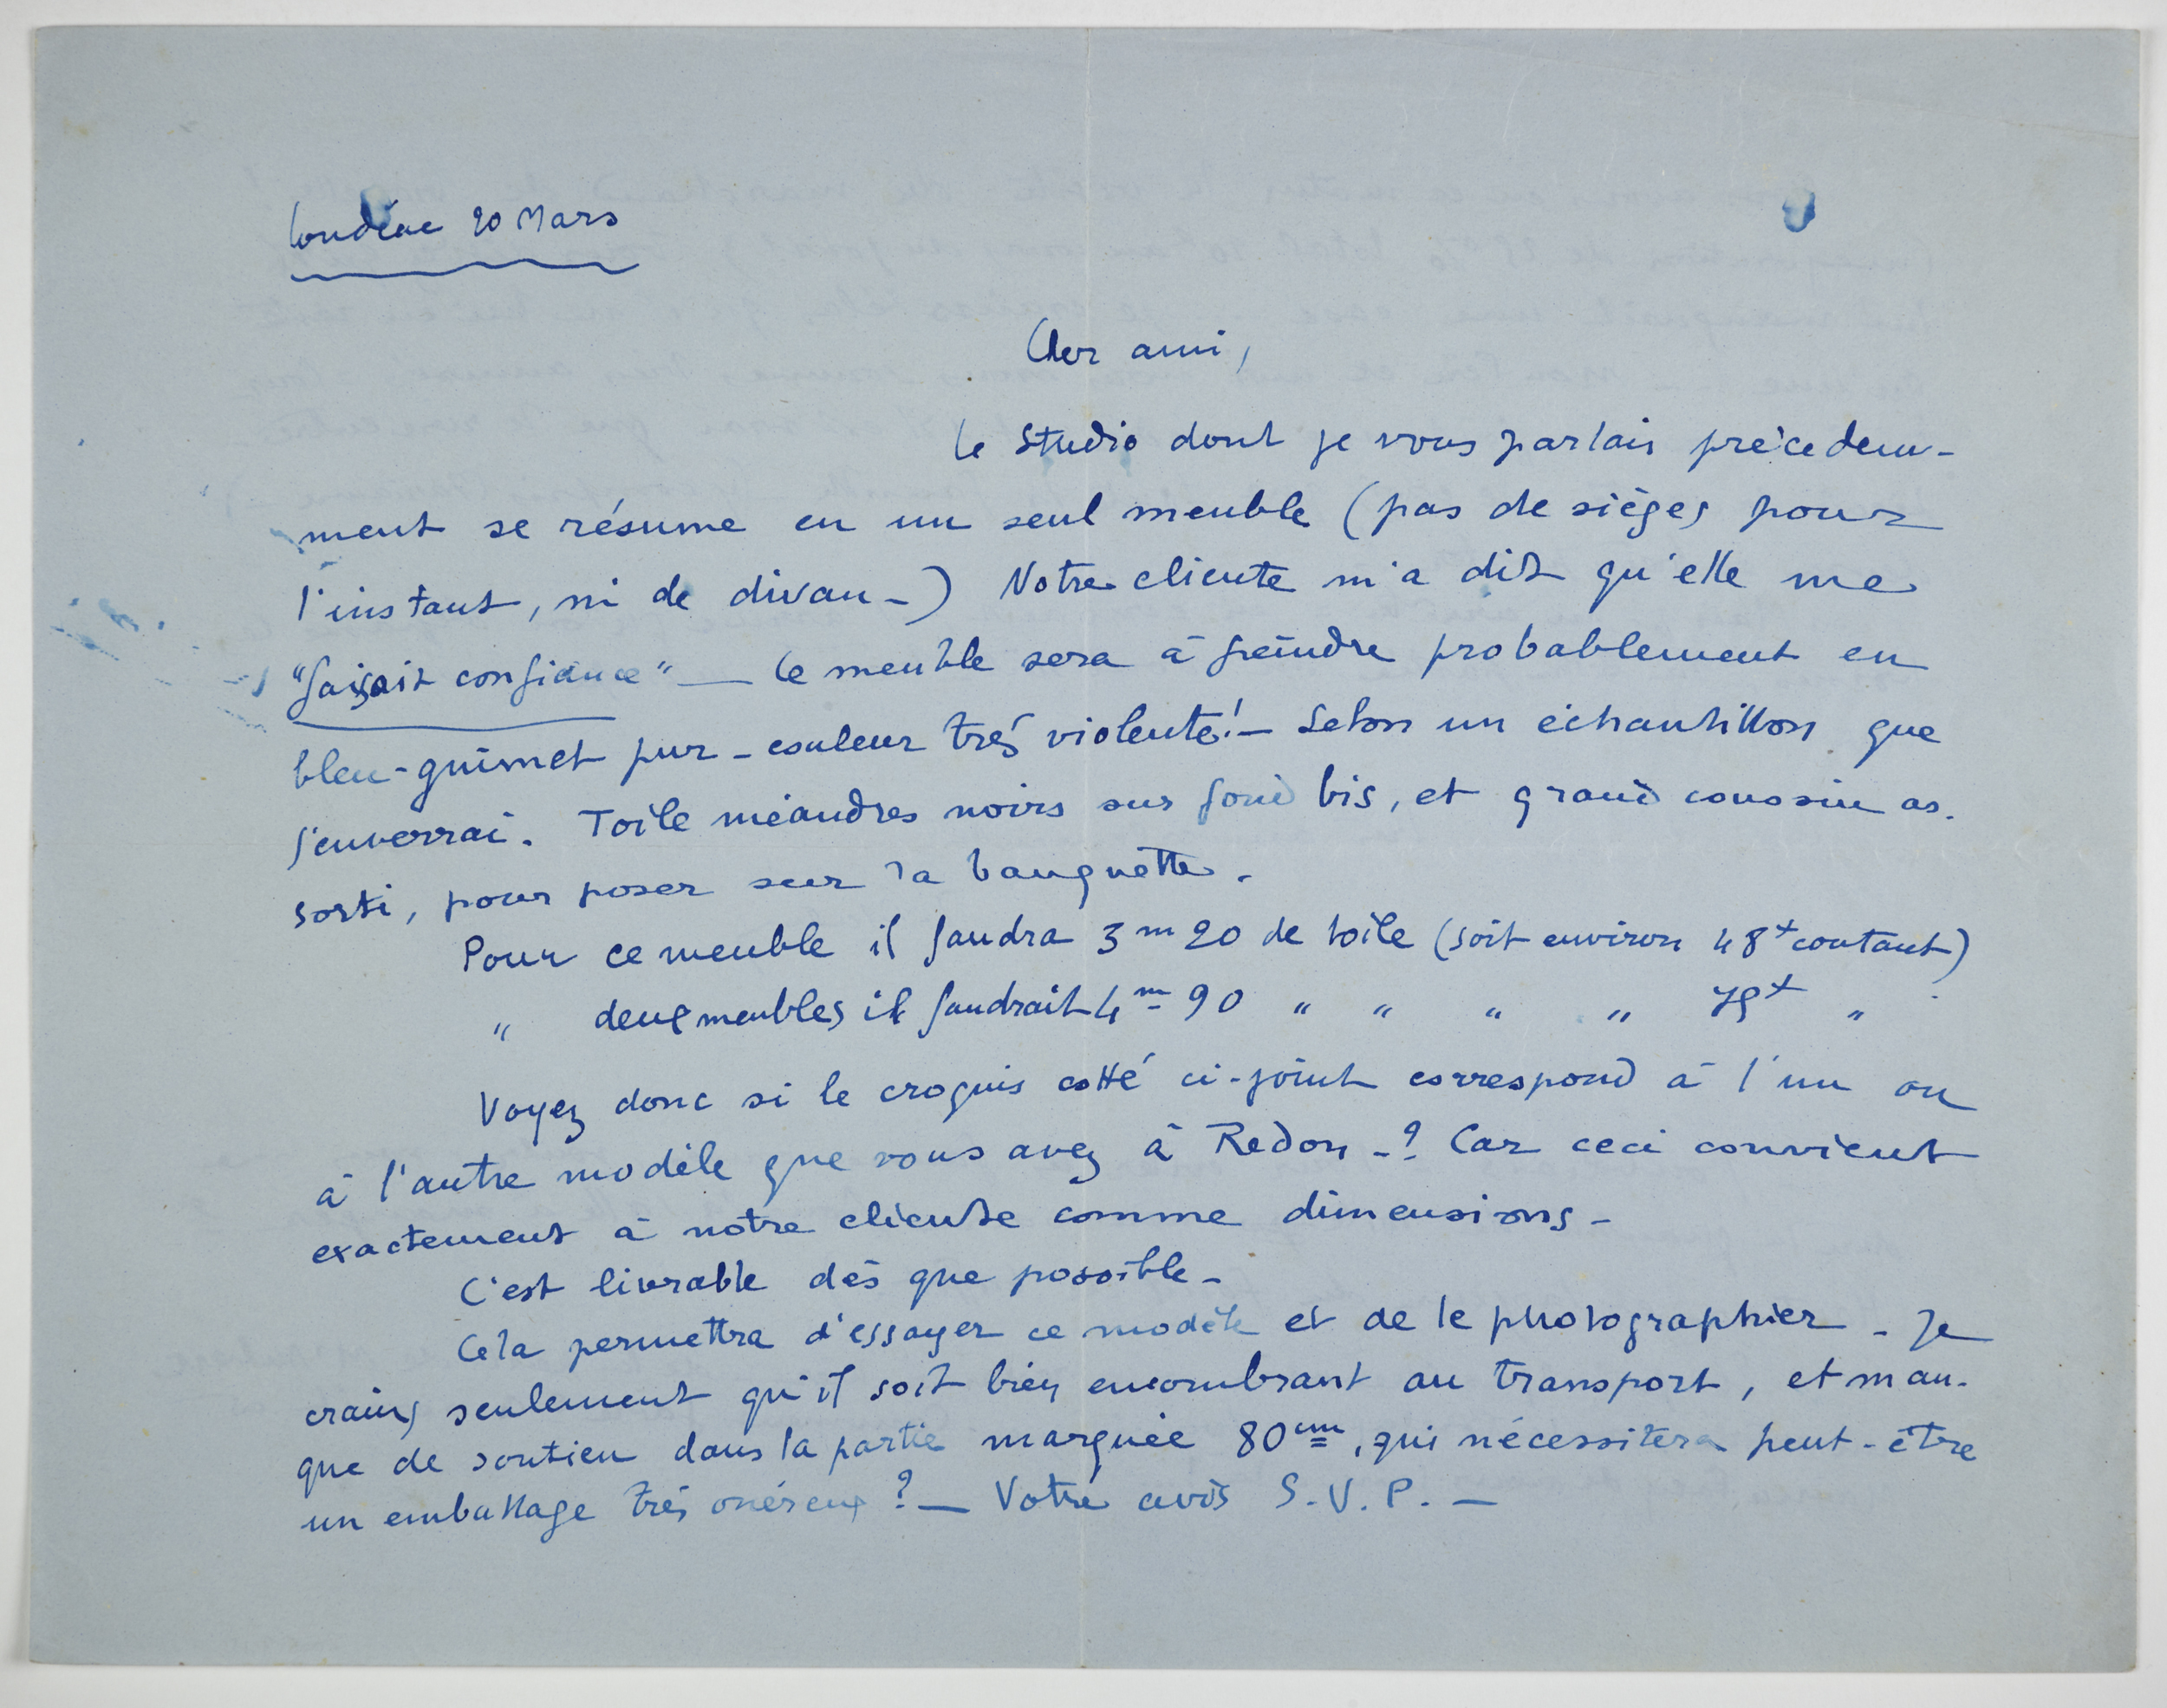 Loudéac 20 Mars
Cher ami,
Le studio dont je vous parlais précédem-
ment se résume en un seul meuble (pas de sièges pour
l'instant, ni de divan -) Notre cliente m'a dit qu'elle me
"faisait confiance" — Ce meuble sera à peindre probablement en
bleu-guimet pur - couleur très violente! - Selon un échantillon que
j'enverrai. Toile méandres noirs sur fond bis, et grand coussin as-
sorti, pour poser sur la banquette.
Pour ce meuble il faudra 3 m 20 de toile (soit environ 48 f coutant)
" deux meubles il faudrait 4 m 90 " " " " f "
Voyez donc si le croquis cotté ci-joint correspond à l'un ou
à l'autre modèle que vous avez à Redon - ? Car ceci convient
exactement à notre cliente comme dimensions -
C'est livrable dès que possible -
Cela permettra d'essayer ce modèle et de le photographier - Je
crains seulement qu'il soit bien encombrant au transport, et man-
que de soutien dans la partie marquée 80 cm, qui nécessitera peut-être
un emballage très onéreux ? — Votre avis S.V.P. —